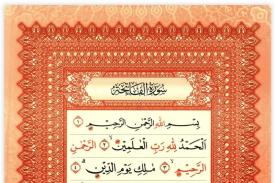 سُورَةُ الْفَاتِحَةِ
بِسْمِ اللَّهِ الرَّحْمَٰنِ الرَّحِيمِ ١
الْحَمْدُ لِلَّهِ رَبِّ الْعَالَمِينَ ٢ الرَّحْمَٰنِ
الرَّحِيمِ ٣ مَلِكِ يَوْمِ الدِّينِ ٤